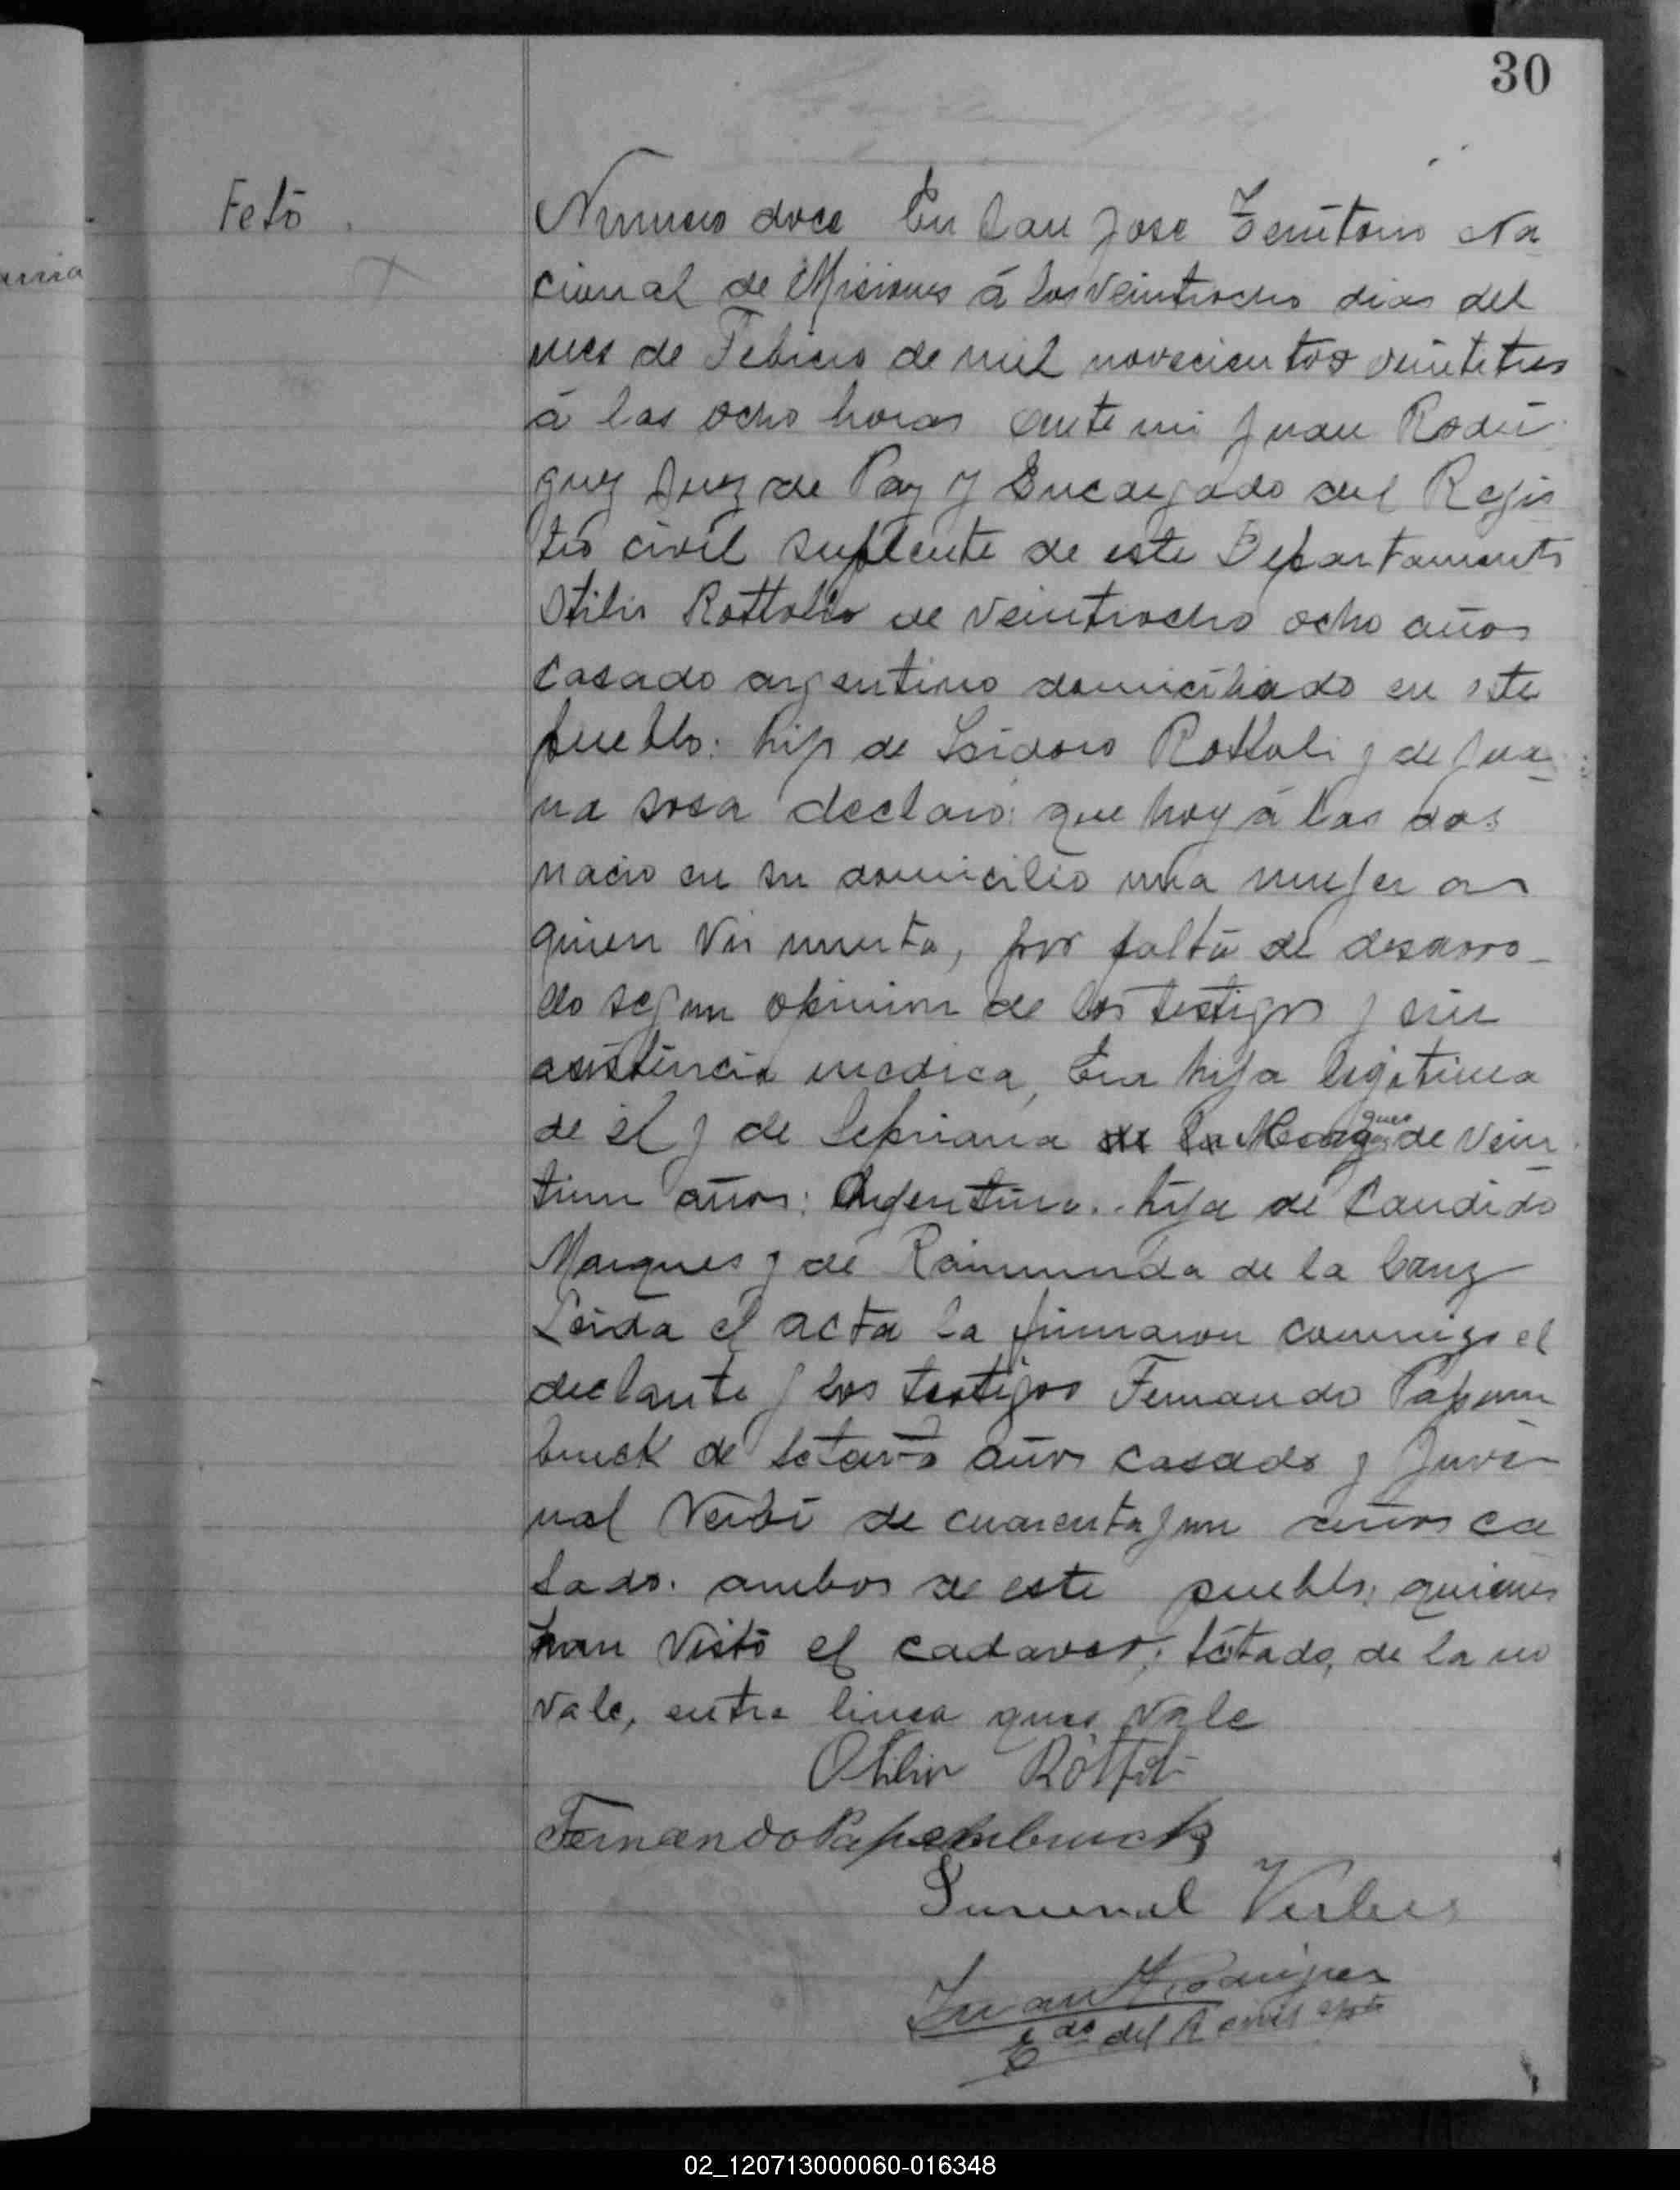 30
Feto
Numero doce En San Jose Territorio Na
cional de Misiones á los veintiocho dias del
mes de Febrero de mil novecientos veintitres
á las ocho horas ante mi Juan Rodri
guez Juez de Paz y Encargado del Regis
tro civil suplente de este Departamento
Otilio Rottoli de veintiocho ocho años
casado argentino domiciliado en este
pueblo: hijo de Isidoro Rottoli y de Jua
na Sosa declaro: que hoy á las dos
nacio en su domicilio una mujer a
quien vió muerta, por falta de desarro-
llo segun opinion de los testigos y sin
asistencia medica, Era hija legitima
de él y de Sepriana de la de vein
ques
tiun años: Argentina.. hija de Candido
Marques y de Raimunda de la Cruz
Leida el acta la firmaron conmigo el
declante y los testigos Fernando Papem
bruck de años casado y Juve-
nal de cuarenta y un años ca
sado. ambos de este pueblo; quienes
han visto el cadaver; de la no
vale, entre linea ques vale
Otilio Rottoli
Fernando Papembruck
Juvenal
Juan Rodriguez
Edo del R civil
02_120713000060-016348